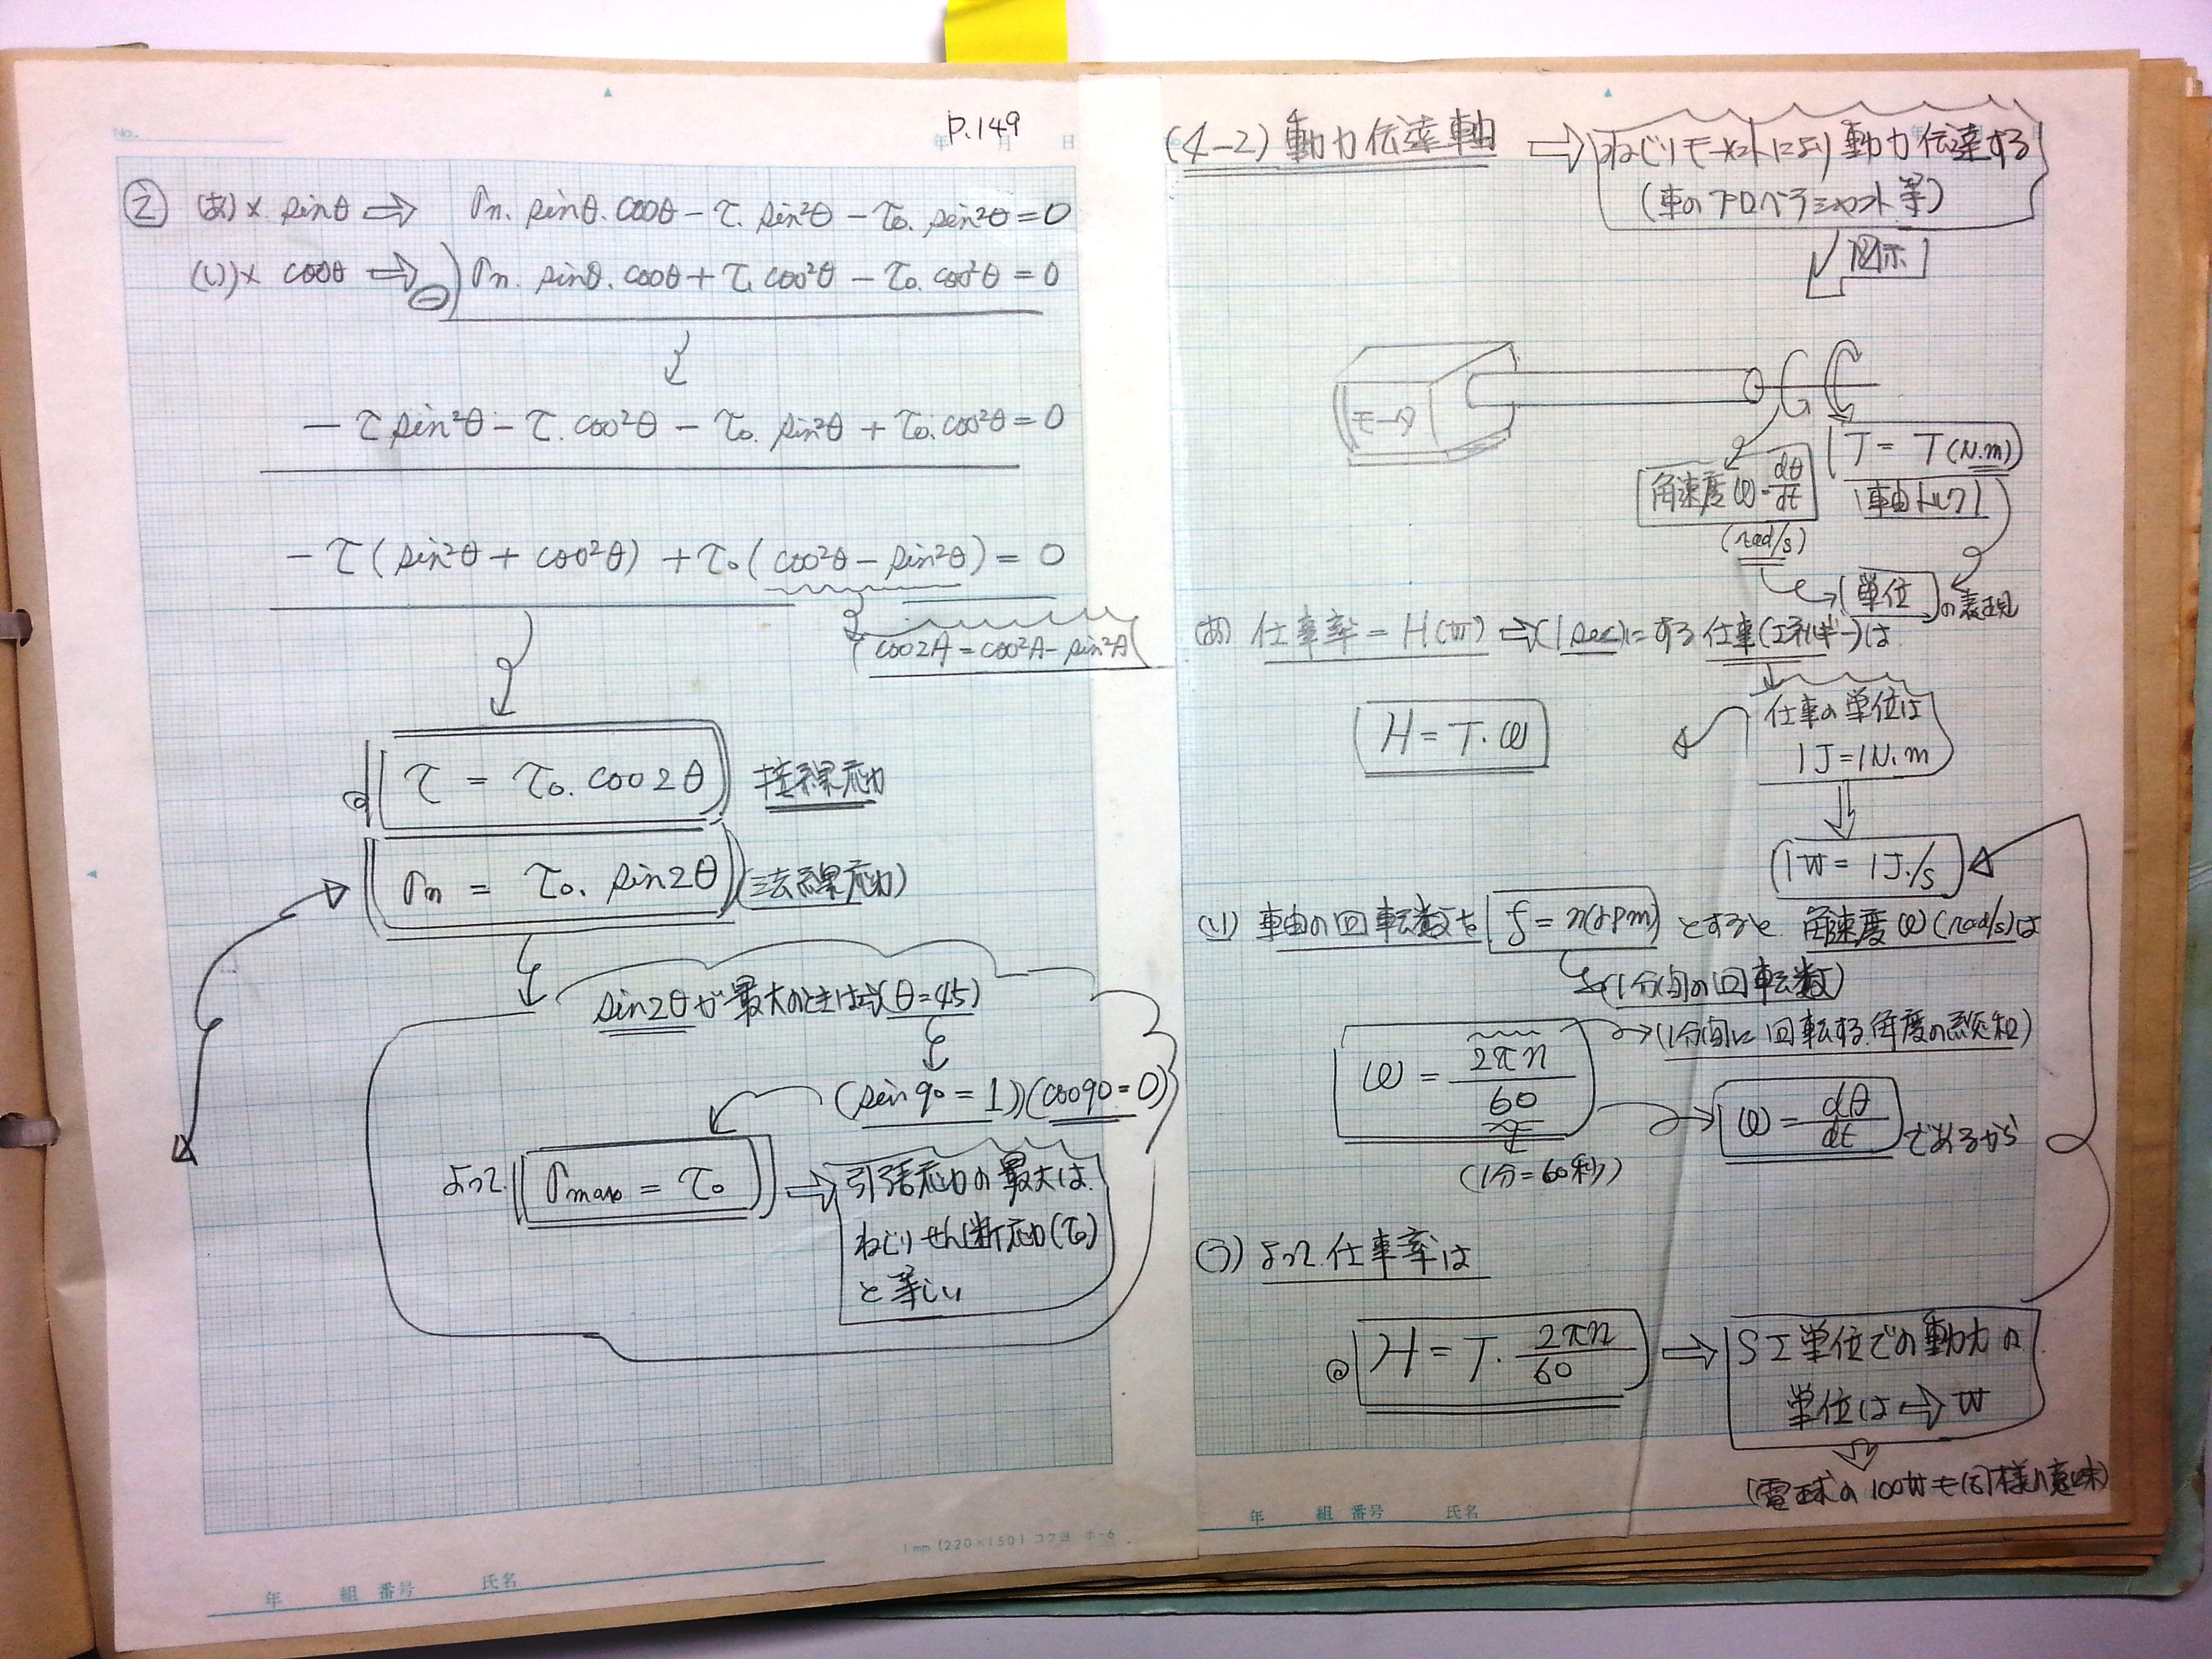 No.
年 月 日
P.149
② (あ)× sinθ ⇒ σn・sinθ・cosθ − τ・sin²θ − τ₀・sin²θ = 0
(い)× cosθ ⇒ ⊖) σn・sinθ・cosθ + τ・cos²θ − τ₀・cos²θ = 0
− τ sin²θ − τ・cos²θ − τ₀・sin²θ + τ₀・cos²θ = 0
− τ(sin²θ + cos²θ) + τ₀(cos²θ − sin²θ) = 0
cos2A = cos²A − sin²A
τ = τ₀・cos2θ 接線応力
σn = τ₀・sin2θ (法線応力)
sin2θが最大のときは⇒(θ=45)
(sin90 = 1)(cos90 = 0)
よって σmax = τ₀ ⇒ 引張応力の最大は
ねじりせん断応力(τ₀)
と等しい
1mm (220×150) コクヨ ホ-6
年 組 番号 氏名
(4-2) 動力伝達軸 ⇒ ねじりモーメントにより動力伝達する
(車のプロペラシャフト等)
図示
モータ
T = T (N.m)
軸トルク
角速度 ω = dθ/dt
(rad/s)
単位 の表現
(あ) 仕事率 = H(W) ⇒ (1sec)にする仕事(エネルギー)は
仕事の単位は
1J = 1N.m
H = T・ω
1W = 1J/s
(い) 軸の回転数を f = n(rpm) とすると 角速度 ω(rad/s)は
(1分間の回転数)
ω = 2πn/60 → (1分間に回転する角度の総和)
ω = dθ/dt であるから
(1分=60秒)
(う) よって 仕事率は
◎ H = T・2πn/60 ⇒ SI単位での動力の
単位は ⇒ W
(電球の100Wも同様の意味)
年 組 番号 氏名